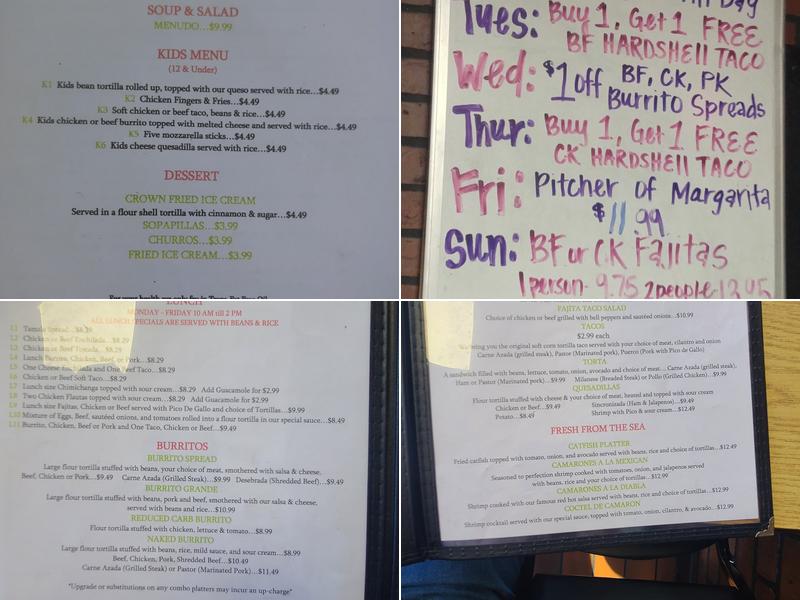 SOUP & SALAD
MENUDO...$9.99
KIDS MENU
(12 & Under)
K1 Kids bean tortilla rolled up, topped with our queso served with rice...$4.49
K2 Chicken Fingers & Fries...$4.49
K3 Soft chicken or beef taco, beans & rice...$4.49
K4 Kids chicken or beef burrito topped with melted cheese and served with rice...$4.49
K5 Five mozzarella sticks...$4.49
K6 Kids cheese quesadilla served with rice...$4.49
DESSERT
CROWN FRIED ICE CREAM
Served in a flour shell tortilla with cinnamon & sugar...$4.49
SOPAPILLAS...$3.99
CHURROS...$3.99
FRIED ICE CREAM...$3.99
For your health we only fry in Trans Fat Free Oil
Day
Tues: Buy 1, Get 1 FREE
BF HARDSHELL TACO
Wed: $1 off BF, CK, PK
Burrito Spreads
Thur: Buy 1, Get 1 FREE
CK HARDSHELL TACO
Fri: Pitcher of Margarita
$11.99
Sun: BF or CK Fajitas
1 person- 9.75 2 people-
LUNCH
MONDAY - FRIDAY 10 AM till 2 PM
ALL LUNCH SPECIALS ARE SERVED WITH BEANS & RICE
L1 Tamale Spread...$8.29
L2 Chicken or Beef Enchilada...$8.29
L3 Chicken or Beef Tostada...$8.29
L4 Lunch Burrito, Chicken, Beef, or Pork...$8.29
L5 One Cheese Enchilada and One Beef Taco...$8.29
L6 Chicken or Beef Soft Taco...$8.29
L7 Lunch size Chimichanga topped with sour cream...$8.29 Add Guacamole for $2.99
L8 Two Chicken Flautas topped with sour cream...$8.29 Add Guacamole for $2.99
L9 Lunch size Fajitas, Chicken or Beef served with Pico De Gallo and choice of Tortillas...$9.99
L10 Mixture of Eggs, Beef, sautéed onions, and tomatoes rolled into a flour tortilla in our special sauce...$8.49
L11 Burrito, Chicken, Beef or Pork and One Taco, Chicken or Beef...$9.49
BURRITOS
BURRITO SPREAD
Large flour tortilla stuffed with beans, your choice of meat, smothered with salsa & cheese.
Beef, Chicken or Pork...$9.49 Carne Azada (Grilled Steak)...$9.99 Desebrada (Shredded Beef)...$9.49
BURRITO GRANDE
Large flour tortilla stuffed with beans, pork and beef, smothered with our salsa & cheese,
served with beans and rice...$10.99
REDUCED CARB BURRITO
Flour tortilla stuffed with chicken, lettuce & tomato...$8.99
NAKED BURRITO
Large flour tortilla stuffed with beans, rice, mild sauce, and sour cream...$8.99
Beef, Chicken, Pork, Shredded Beef...$10.49
Carne Azada (Grilled Steak) or Pastor (Marinated Pork)...$11.49
*Upgrade or substitutions on any combo platters may incur an up-charge*
FAJITA TACO SALAD
Choice of chicken or beef grilled with bell peppers and sautéed onions...$10.99
TACOS
$2.99 each
you the original soft corn tortilla taco served with your choice of meat, cilantro and onion
Carne Azada (grilled steak), Pastor (Marinated pork), Puerco (Pork with Pico de Gallo)
TORTA
A sandwich filled with beans, lettuce, tomato, onion, avocado and choice of meat... Carne Azada (grilled steak),
Ham or Pastor (Marinated pork)...$9.99 Milanese (Breaded Steak) or Pollo (Grilled Chicken)...$9.99
QUESADILLAS
Flour tortilla stuffed with cheese & your choice of meat, heated and topped with sour cream
Chicken or Beef...$9.49 Sincronizada (Ham & Jalapenos)...$9.49
Potato...$8.49 Shrimp with Pico & sour cream...$12.49
FRESH FROM THE SEA
CATFISH PLATTER
Fried catfish topped with tomato, onion, and avocado served with beans, rice and choice of tortillas...$12.49
CAMARONES A LA MEXICAN
Seasoned to perfection shrimp cooked with tomatoes, onion, and jalapenos served
with beans, rice and your choice of tortillas...$12.99
CAMARONES A LA DIABLA
Shrimp cooked with our famous red hot salsa served with beans, rice and choice of tortillas...$12.99
COCTEL DE CAMARON
Shrimp cocktail served with our special sauce, topped with tomato, onion, cilantro, & avocado...$12.99